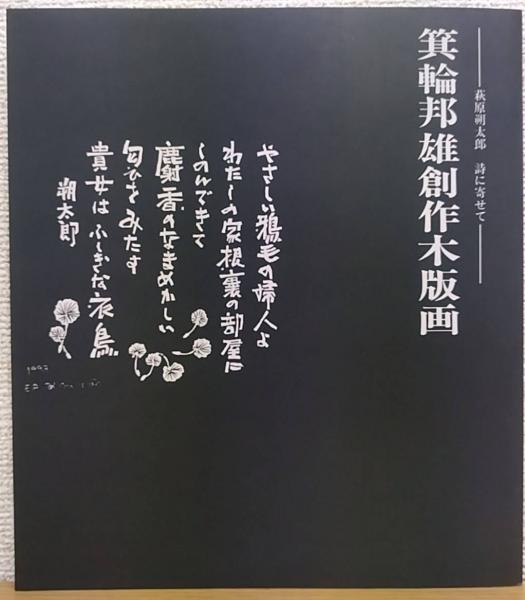 萩原朔太郎 詩に寄せて
箕輪邦雄創作木版画
やさしい鴉毛の婦人よ
わたしの家根裏の部屋に
しのんできて
麝香のなまめかしい
匂ひをみたす
貴女はふしぎな夜鳥
朔太郎
1992